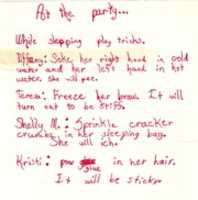 At the party...
While sleeping play tricks.
Tiffany: Soke, her right hand in cold
water and her left hand in hot
water. she will pee.
Teresa: Freeze her brow. It will
turn out to be stiff.
Shelly M.: Sprinkle cracker
crumbs in her sleeping bag.
She will itch.
Kristi: pour glue in her hair.
It will be sticky.